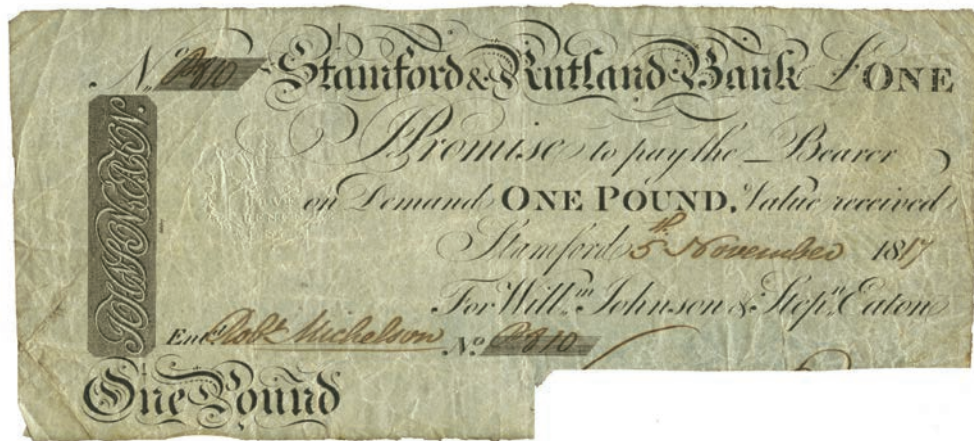 No. Stamford & Rutland Bank £ONE
I Promise to pay the Bearer
on Demand ONE POUND, Value received
Stamford 5th November 1817
For Willm. Johnson & Stepn. Eaton
Entd. Robt Michelson No.
One Pound